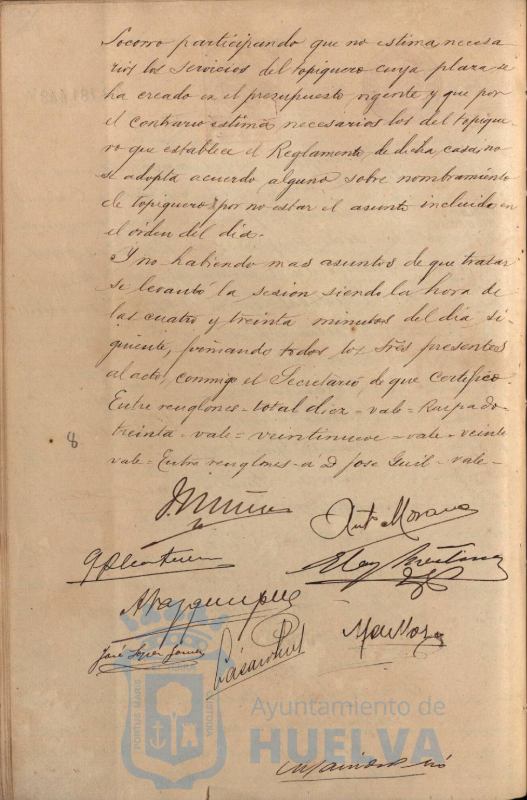 Socorro participando que no estima necesa
rios los servicios del topiquero cuya plaza se
ha creado en el presupuesto vigente y que por
el contrario estima necesarios los del topique
ro que establece el Reglamento de dicha casa, no
se adopta acuerdo alguno sobre nombramiento
de topiquero por no estar el asunto incluido en
el orden del dia.
Y no habiendo mas asuntos de que tratar
se levantó la sesion siendo la hora de
las cuatro y treinta minutos del dia si-
guiente, firmando todos los Sres presentes
al acto, conmigo el Secretario, de que certifico.
Entre renglones - total diez - vale = Raspado -
treinta - vale = veintinueve = vale = veinte
8
vale = Entre renglones - á D José Guil - vale -
Antº Morano
José López Gómez
PORTUS MARIS
CUSTODIA
Ayuntamiento de
HUELVA